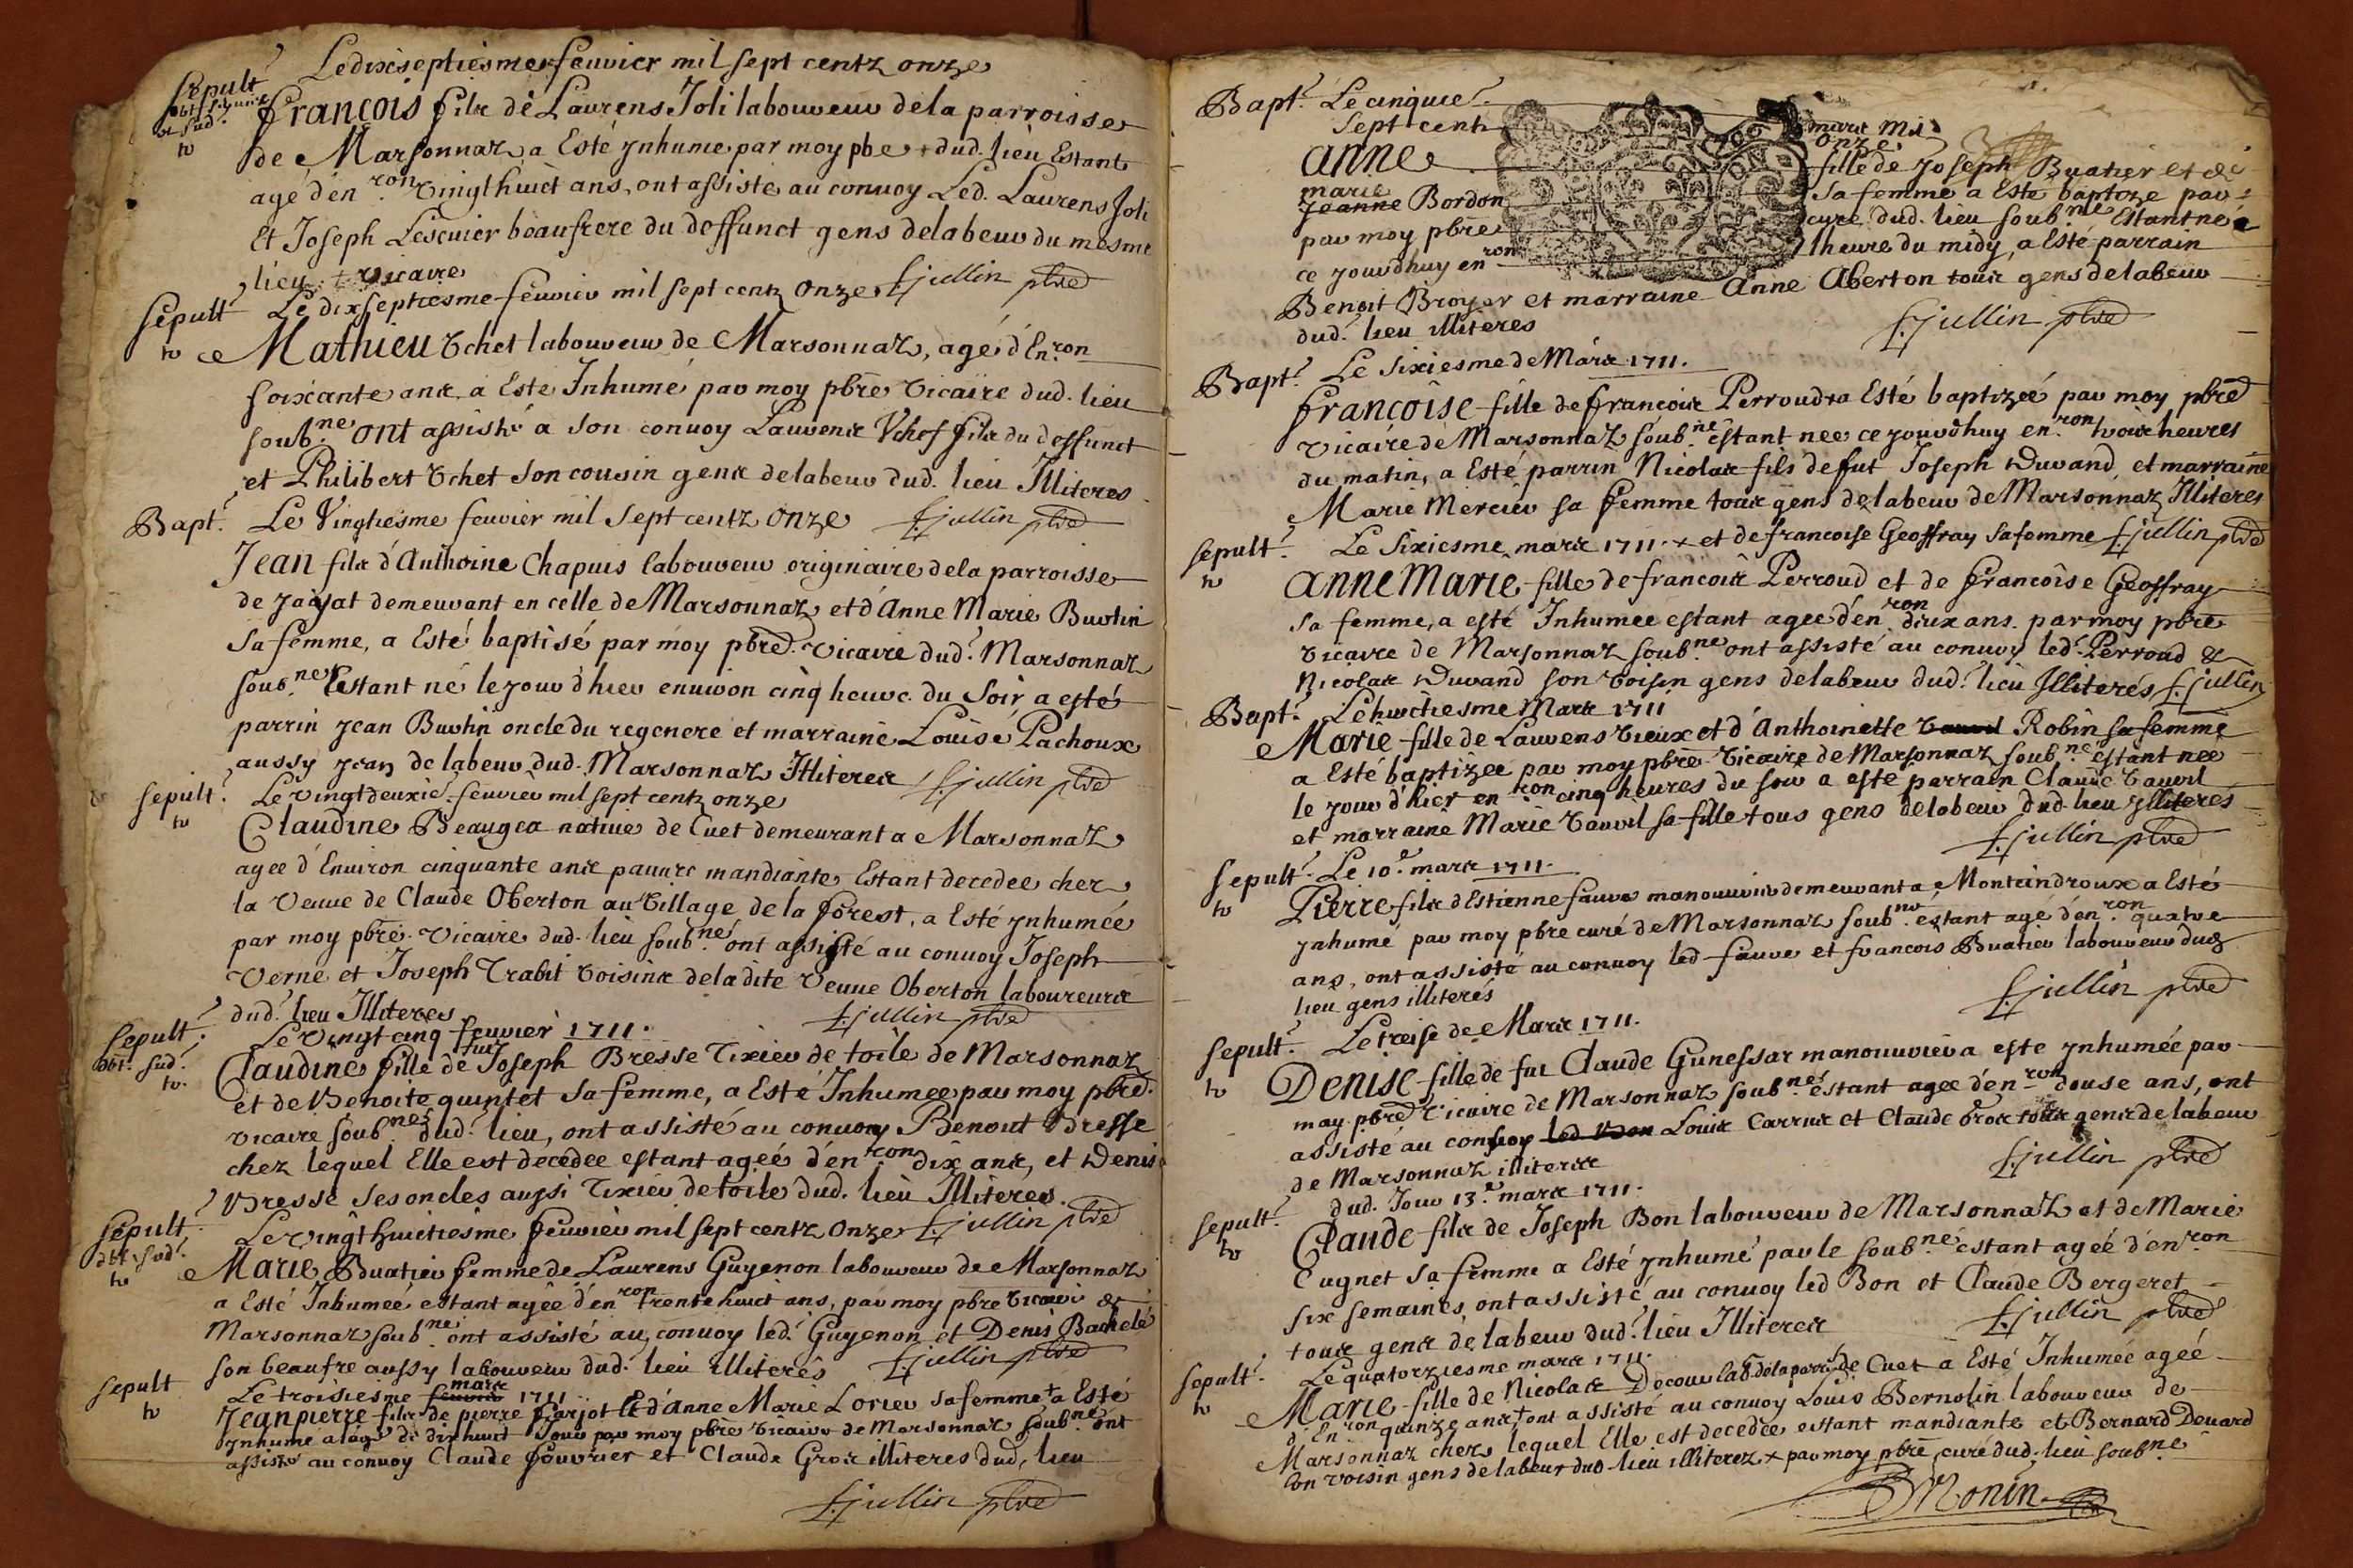 Le dixseptiesme feuvier mil sept centz onze
Sepult.
obt. sud.
tv
françois filz de Laurens Joli laboureur de la parroisse
de Marsonnaz a Esté ynhume par moy pbre + dud. lieu Estant
agé d'en.ron vingthuict ans, ont assisté au convoy Led. Laurens Joli
Et Joseph Lescuier beaufrere du deffunct gens de labeur du mesme
lieu + vicaire
f. jullin pbre
Sepult Le dixseptiesme feuvier mil sept centz onze
tv
Mathieu Vchet laboureur de Marsonnaz, agé d'En.ron
soixante ans, a Esté Inhumé par moy pbre vicaire dud. lieu
soub.ne ont assisté a son convoy Laurens Vchet filz du deffunct
et Philibert Vchet son cousin gens de labeur dud. lieu Illiteres
Bapt. Le Vingtiesme feuvier mil sept centz onze f. jullin pbre
Jean filz d'Anthoine Chapuis laboureur originaire de la parroisse
de Jayat demeurant en celle de Marsonnaz et d'Anne Marie Burtin
sa femme, a Esté baptisé par moy pbre vicaire dud. Marsonnaz
soub.ne Estant né le jour d'hier environ cinq heure du soir a esté
parrin Jean Burtin oncle du regeneré et marraine Louise Pachoux
aussy gens de labeur dud. Marsonnaz Illiterez f. jullin pbre
sepult. Le vingtdeuxie. feuvier mil sept centz onze
tv
Claudine Beaugea natiue de Cuet demeurant a Marsonnaz
agee d'Environ cinquante ans pauure mandiante Estant decedee chez
la Veuue de Claude Oberton au village de la forest, a Esté ynhumée
par moy pbre. vicaire dud. lieu soub.né ont assisté au convoy Joseph
Verne et Joseph Trabit voisins de ladite Veuue Oberton laboureurs
dud. lieu Illiteres f. jullin pbre
Sepult. Le vingt cinq feuvier 1711.
obt. sud.
tv.
fut
Claudine fille de Joseph Bresse Tixier de toile de Marsonnaz
et de Benoite quintet sa femme, a Esté Inhumee par moy pbre.
vicaire soub.nes dud. lieu, ont assisté au convoy Benout Bresse
chez lequel Elle est decedee estant ageé d'en.ron dix ans, et Denis
Bresse ses oncles aussi Tixier de toile dud. lieu Illiteres.
Sepult. Le vingt huictiesme feuvier mil sept centz onze f. jullin pbre
obt. sud.
tv
Marie Buatier femme de Laurens Guyenon laboureur de Marsonnaz
a Esté Inhumeé estant agée d'en.ron trente huict ans, par moy pbre vicaire de
Marsonnaz soub.ne ont assisté au convoy led. Guyenon et Denis Bachelé
son beaufre aussy laboureur dud. lieu illiterés f. jullin pbre
sepult Le troisiesme feuvier mars 1711.
tv
Jean pierre filz de pierre farjot et d'Anne Marie Lorier sa femme + a Esté
ynhumé a laage de dixhuict jour par moy pbre vicaire de Marsonnaz soub.né ont
assisté au convoy Claude fouvrier et Claude Gros illiteres dud. lieu
f. jullin pbre
Bapt. Le cinquie. mars mil
sept cent onze
anne fille de Joseph Buatier et de
marie
Jeanne Bordon sa femme a Esté baptize par
par moy pbre curé dud. lieu soub.ne Estant née
ce jourdhuy en.ron lheure du midy, a Esté parrain
Benoit Broyer et marraine Anne Aberton tous gens de labeur
dud. lieu illiteres f. jullin pbre
Bapt. Le Sixiesme de Mars 1711.
françoise fille de françois Perroud + a Esté baptizeé par moy pbre
vicaire de Marsonnaz soub.ne estant nee ce jourdhuy en.ron trois heures
du matin, a Esté parrin Nicolas fils de fut Joseph Durand et marraine
Marie Mercier sa femme tous gens de labeur de Marsonnaz Illiteres
sepult. Le Sixiesme mars 1711. + et de francoise Geoffray sa femme f. jullin pbre
tv
anne Marie fille de francois Perroud et de francoise Geoffray
sa femme, a esté Inhumee estant agee d'en.ron deux ans par moy pbre
vicaire de Marsonnaz soub.ne ont assisté au convoy led. Perroud &
Nicolas Durand son voisin gens de labeur dud. lieu Illiterés f. jullin
Bapt. Le huictiesme Mars 1711
Marie fille de Laurens vieux et d'Anthoinette Robin sa femme
a Esté baptizee par moy pbre vicaire de Marsonnaz soub.ne estant nee
le jour d'hier en.ron cinq heures du soir a esté parrain Claude Tauvil
et marraine Marie Tauvil sa fille tous gens de labeur dud. lieu ylliterés
f. jullin pbre
sepult. Le 10.e mars 1711.
tv
Pierre filz d'Estienne faure manouvrier demeurant a Monteindroux a Esté
ynhumé par moy pbre curé de Marsonnaz soub.né éstant agé d'en.ron quatre
ans, ont assisté au convoy led faure et francois Buatier laboureur dud
lieu gens illiterés f. jullin pbre
sepult. Le treise de Mars 1711.
tv
Denise fille de fut Claude Gunessar manouvrier a esté ynhumée par
moy pbre vicaire de Marsonnaz soub.nes estant agee d'en.ron douse ans, ont
assisté au convoy Louis Carrus et Claude Gros tous gens de labeur
de Marsonnaz illiterez f. jullin pbre
sepult. dud. Jour 13.e mars 1711.
tv
Claude filz de Joseph Bon laboureur de Marsonnaz et de Marie
Cugnet sa femme a Esté ynhumé par le soub.né estant ageé d'en.ron
six semaines, ont assisté au convoy led Bon et Claude Bergeret
tous gens de labeur dud. lieu Illiterez f. jullin pbre
sepult. Le quatorziesme mars 1711.
tv
Marie fille de Nicolas Decour lab. de la parr. de Cuet a Esté Inhumée ageé
d'En.ron quinze ans + ont assisté au convoy Louis Bernolin laboureur de
Marsonnaz chez lequel Elle est decedée estant mandiante et Bernard Devard
son voisin gens de labeur dud. lieu illiterez + par moy pbre curé dud. lieu soub.ne
Monin